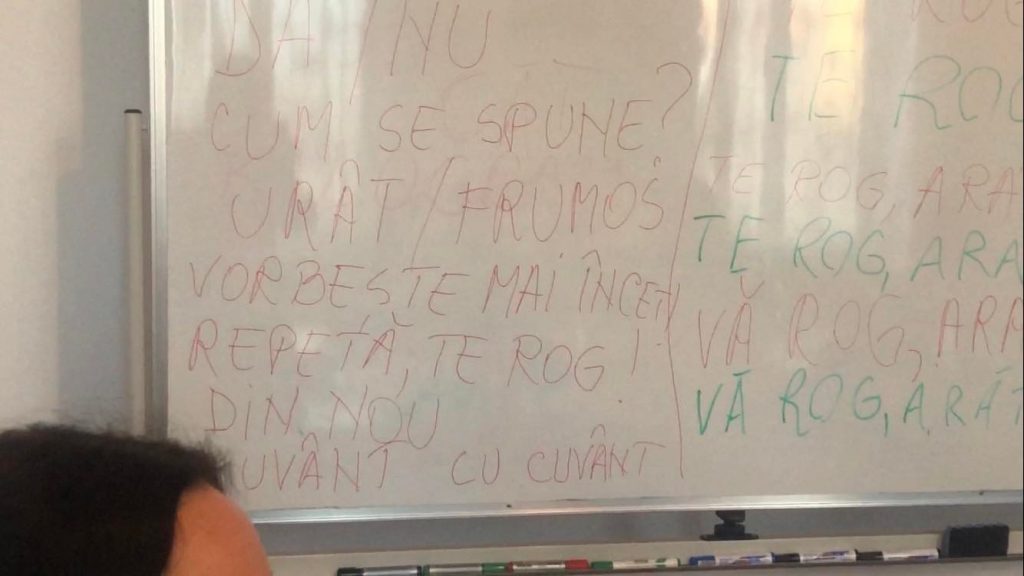 DA / NU
CUM SE SPUNE?
URÂT / FRUMOS
VORBEȘTE MAI ÎNCET!
REPETĂ, TE ROG!
DIN NOU
CUVÂNT CU CUVÂNT
TE ROG
TE ROG, ARA
TE ROG, ARA
VĂ ROG, ARA
VĂ ROG, ARĂT